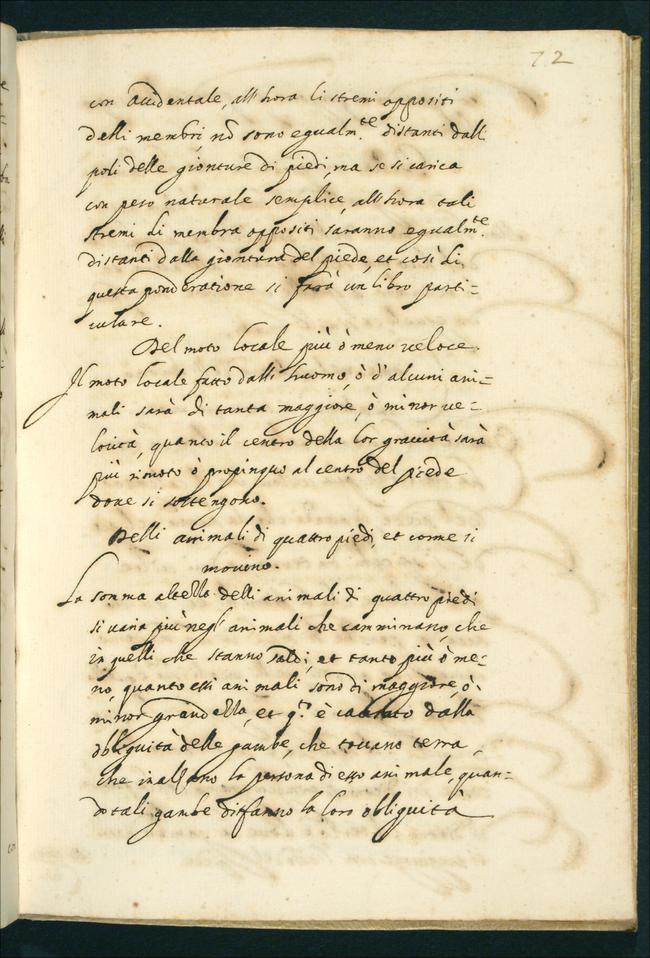 72
con accidentale, all'hora li stremi oppositi
delli membri, nō sono egualm.te distanti dalli
poli delle gionture di piedi, ma se si carica
con peso naturale semplice, all'hora tali
stremi di membra oppositi saranno egualm.te
distanti dalla giontura del piede, et così di
questa ponderatione si farà un libro parti=
culare.
Del moto locale più ò meno veloce.
Il moto locale fatto dalli huomo, ò d'alcuni ani=
mali sarà di tanta maggiore, ò minor ve=
locità, quanto il centro della lor gravità sarà
più rimoto ò propinquo al centro del piede
doue si sostengono.
Delli animali di quattro piedi, et come si
mouino.
La somma altezza delli animali di quattro piedi
si uaria più negl' animali che camminano, che
in quelli che stanno saldi, et tanto più ò me=
no, quanto essi animali sono di maggiore, ò
minor grandezza, et q.o è causato dalla
obliquità delle gambe, che toccano terra,
che inalzano la persona di esso animale, quan=
do tali gambe disfanno la loro obliquità